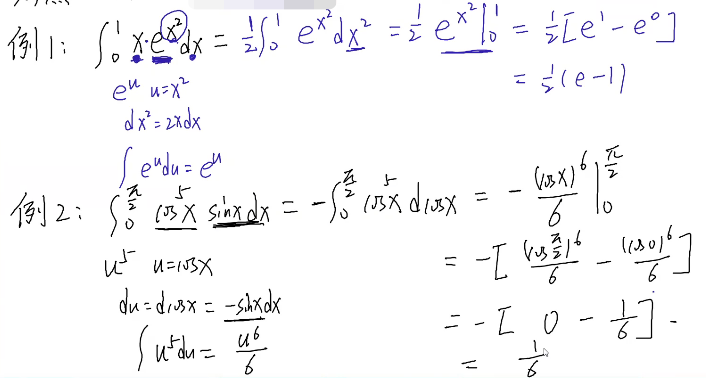 例1: ∫₀¹ x·e^{x²}dx = ½∫₀¹ e^{x²}dx² = ½ e^{x²}|₀¹ = ½[e¹ - e⁰]
= ½(e-1)
e^u u=x²
dx²=2xdx
∫e^u du = e^u
例2: ∫₀^{π/2} cos⁵x sinx dx = -∫₀^{π/2} cos⁵x dcosx = - (cosx)⁶/6 |₀^{π/2}
u⁵ u=cosx
= -[ (cos π/2)⁶/6 - (cos0)⁶/6 ]
du=dcosx = -sinxdx
= -[ 0 - 1/6 ].
∫u⁵du = u⁶/6
= 1/6